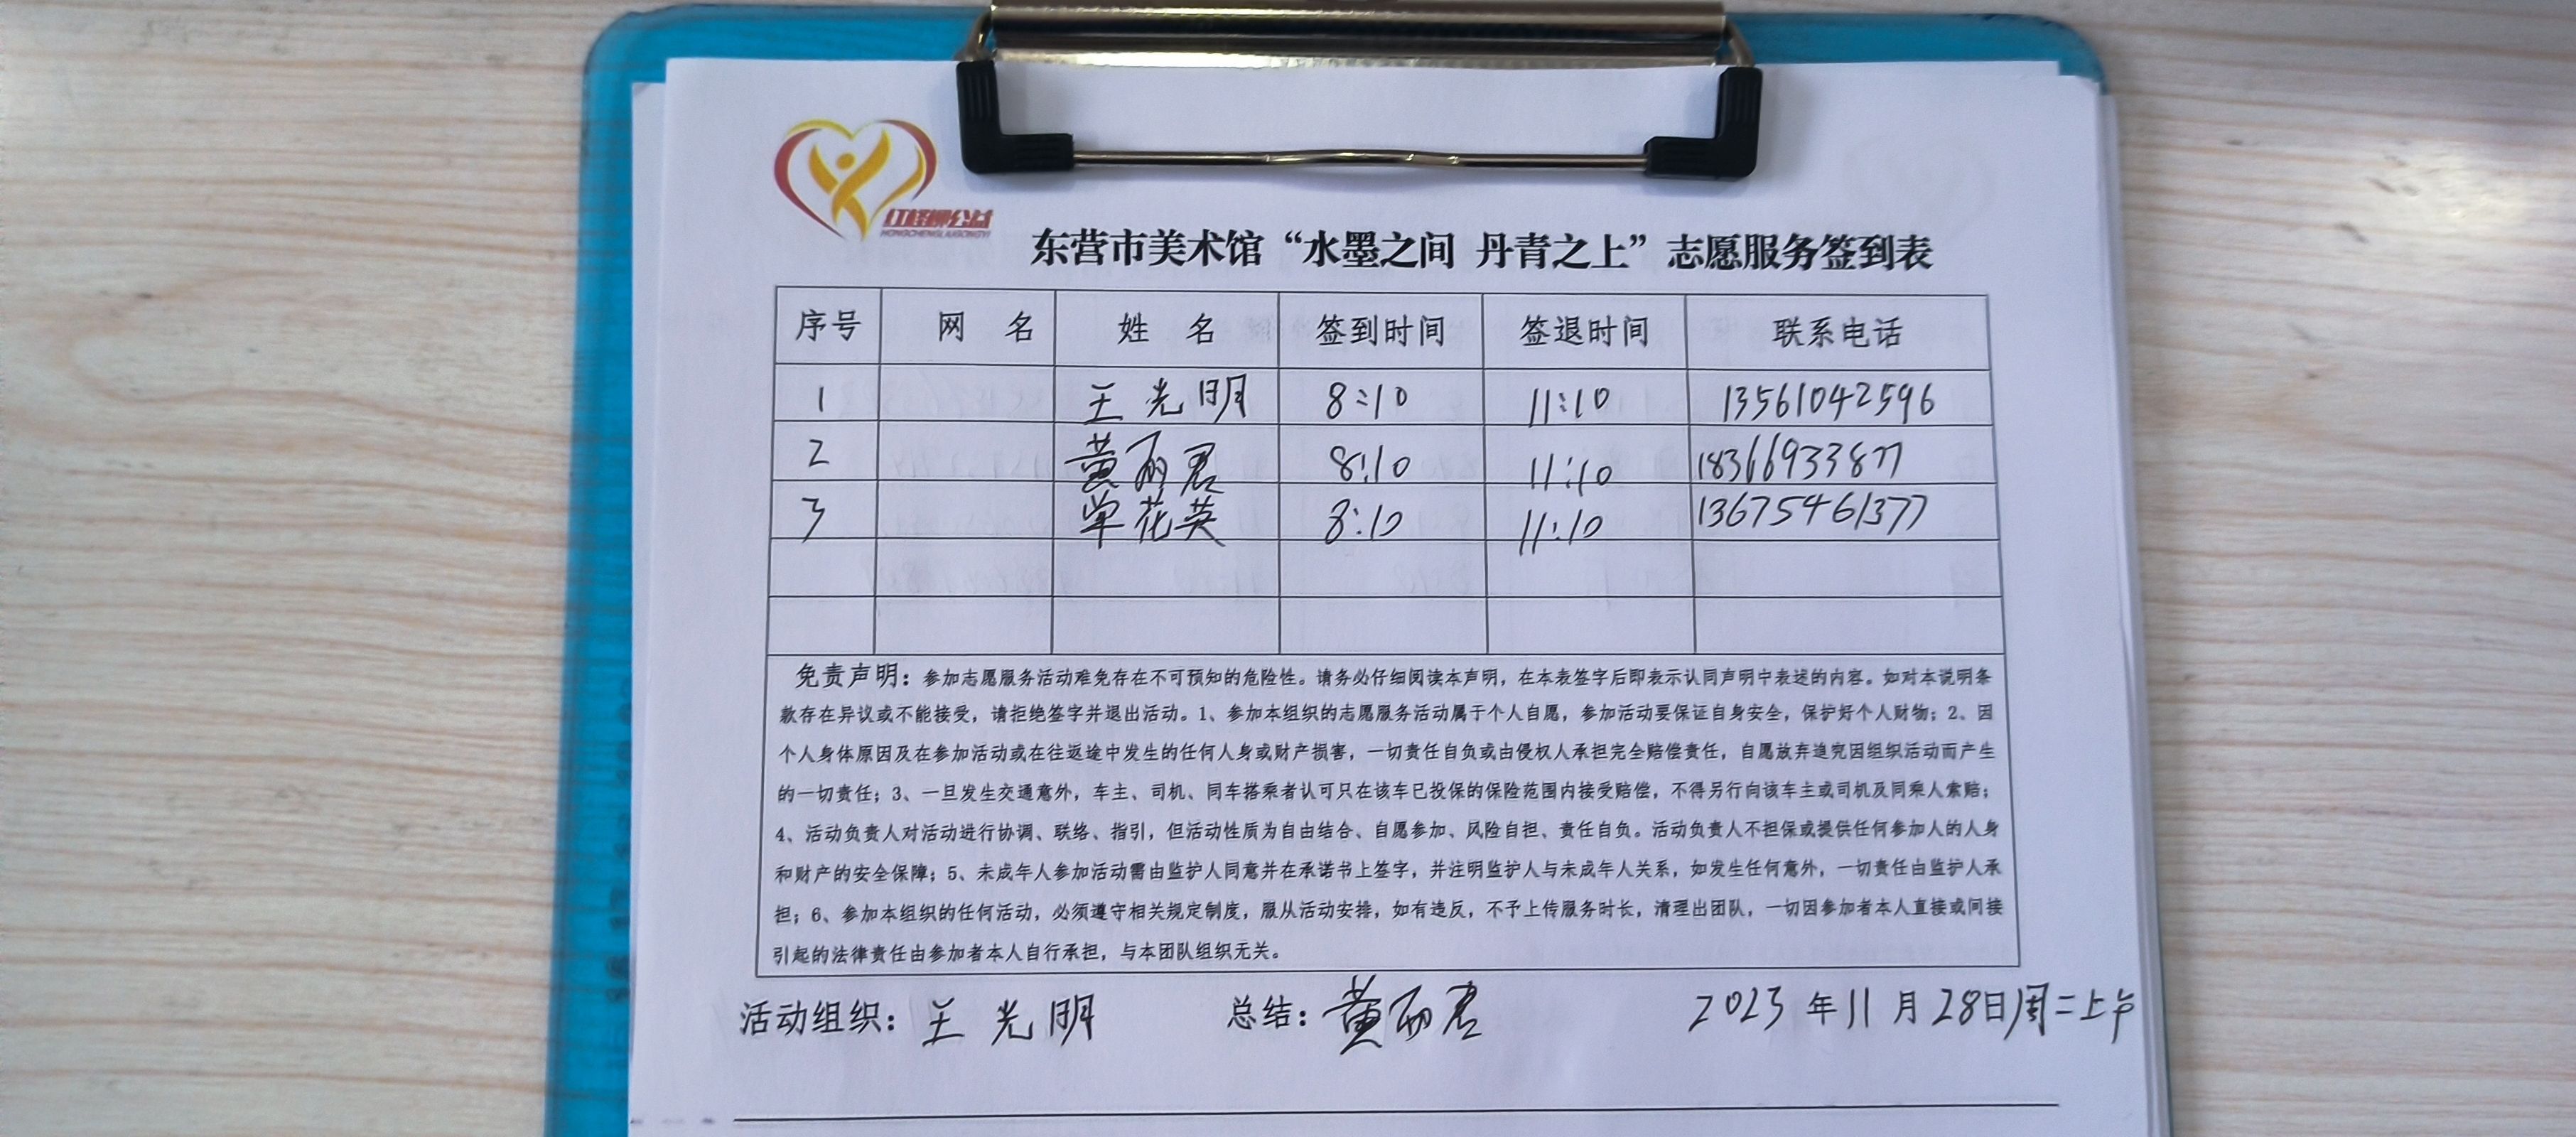 红柽柳公益
HONGCHENGLIUGONGYI
东营市美术馆“水墨之间 丹青之上”志愿服务签到表
序号 网 名 姓 名 签到时间 签退时间 联系电话
1 王光明 8:10 11:10 13561042596
2 黄丽君 8:10 11:10 18366933877
3 单花英 8:10 11:10 13675461377
免责声明：参加志愿服务活动难免存在不可预知的危险性。请务必仔细阅读本声明，在本表签字后即表示认同声明中表述的内容。如对本说明条
款存在异议或不能接受，请拒绝签字并退出活动。1、参加本组织的志愿服务活动属于个人自愿，参加活动要保证自身安全，保护好个人财物；2、因
个人身体原因及在参加活动或在往返途中发生的任何人身或财产损害，一切责任自负或由侵权人承担完全赔偿责任，自愿放弃追究因组织活动而产生
的一切责任；3、一旦发生交通意外，车主、司机、同车搭乘者认可只在该车已投保的保险范围内接受赔偿，不得另行向该车主或司机及同乘人索赔；
4、活动负责人对活动进行协调、联络、指引，但活动性质为自由结合、自愿参加、风险自担、责任自负。活动负责人不担保或提供任何参加人的人身
和财产的安全保障；5、未成年人参加活动需由监护人同意并在承诺书上签字，并注明监护人与未成年人关系，如发生任何意外，一切责任由监护人承
担；6、参加本组织的任何活动，必须遵守相关规定制度，服从活动安排，如有违反，不予上传服务时长，清理出团队，一切因参加者本人直接或间接
引起的法律责任由参加者本人自行承担，与本团队组织无关。
活动组织：王光明 总结：黄丽君 2023年11月28日周二上午